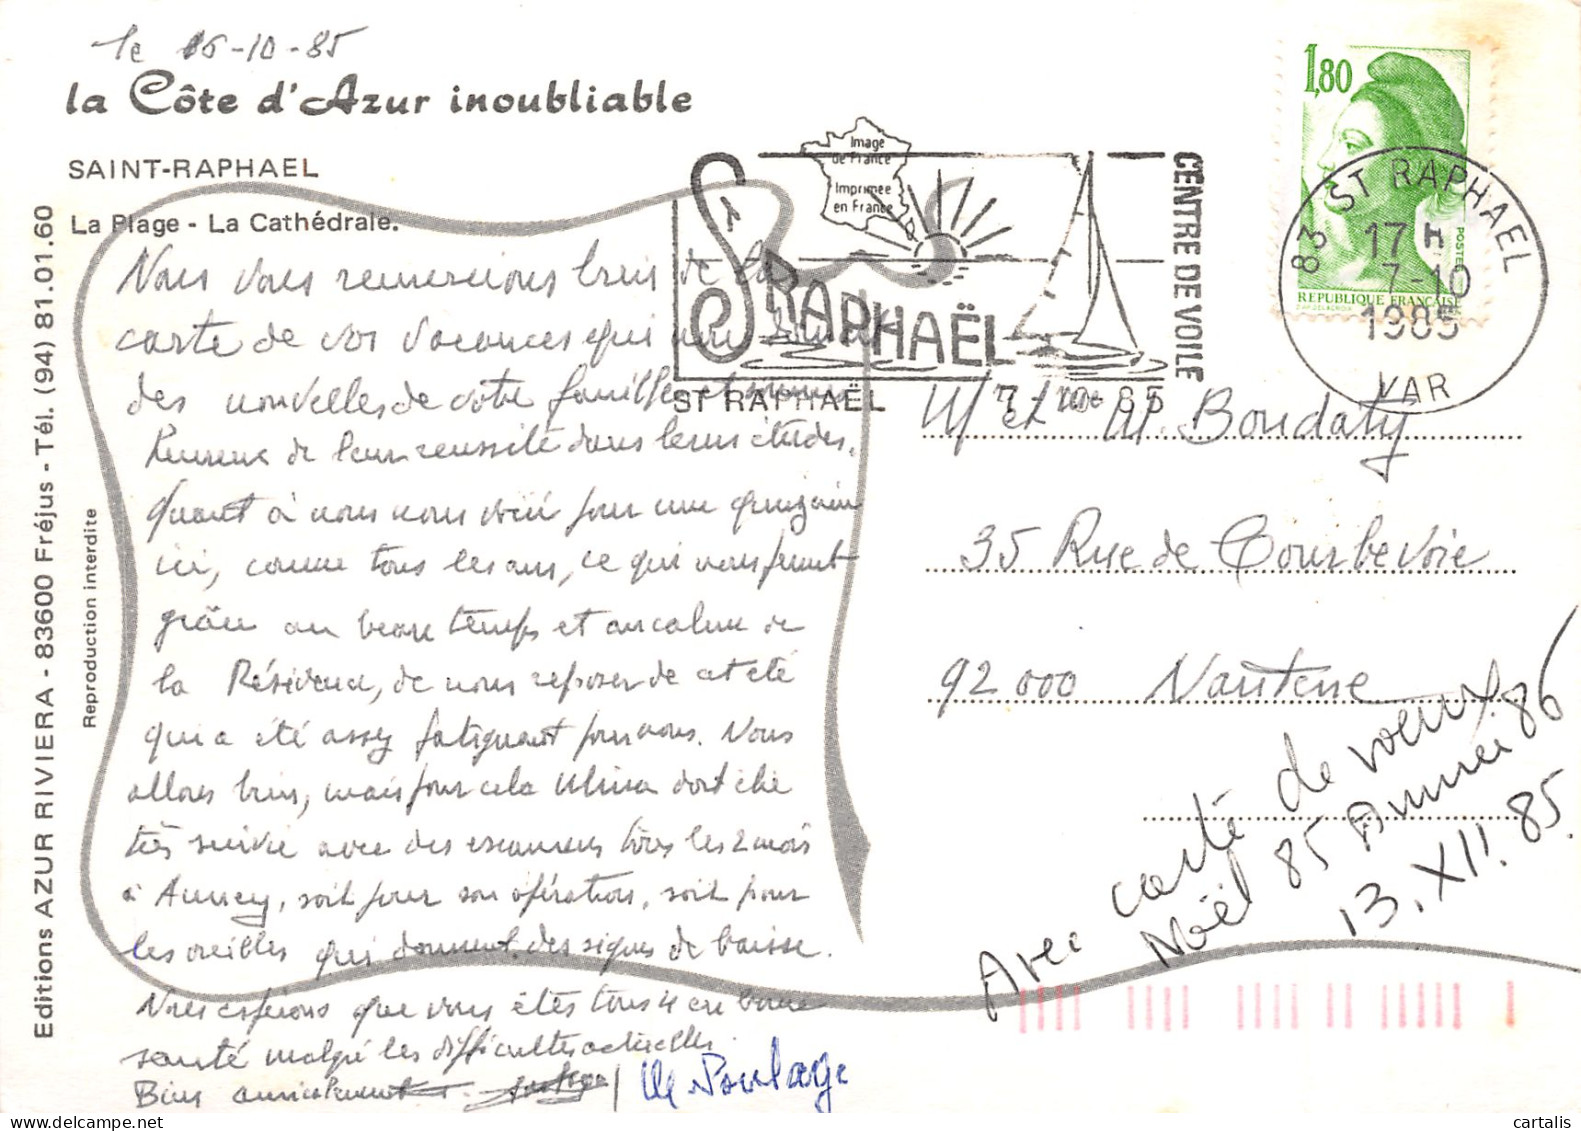 le 6-10-85
la Côte d'Azur inoubliable
SAINT-RAPHAEL
La Plage - La Cathédrale.
Editions AZUR RIVIERA - 83600 Fréjus - Tél. (94) 81.01.60
Reproduction interdite
Nous vous remercions bien de la
carte de vos vacances qui
des nouvelles de votre famille et sommes
heureux de leur reussite dans leurs études.
quant à nous nous voici pour une quinzaine
ici, comme tous les ans, ce qui nous permet
grâce au beau temps et au calme de
la Résidence, de nous reposer de cet été
qui a été assez fatiguant pour nous. Nous
allons bien, mais pour cela doit être
très suivie avec des examens tous les 2 mois
à Annecy, soit pour son opération, soit pour
les oreilles qui donnent des signes de baisse.
Nous espérons que vous êtes tous 4 en bonne
santé malgré les difficultés actuelles.
Bien amicalement
M Poulage
Image
de France
Imprimée
en France
ST RAPHAËL
CENTRE DE VOILE
ST RAPHAËL 7-10-85
1,80
POSTES
REPUBLIQUE FRANÇAISE
83 ST RAPHAEL
17 H
7-10
1985
VAR
M et M. Boudaty
35 Rue de Courbevoie
92 000 Nanterre
Avec carte de voeux
Noël 85 Année 86
13.XII.85.
cartalis
www.delcampe.net